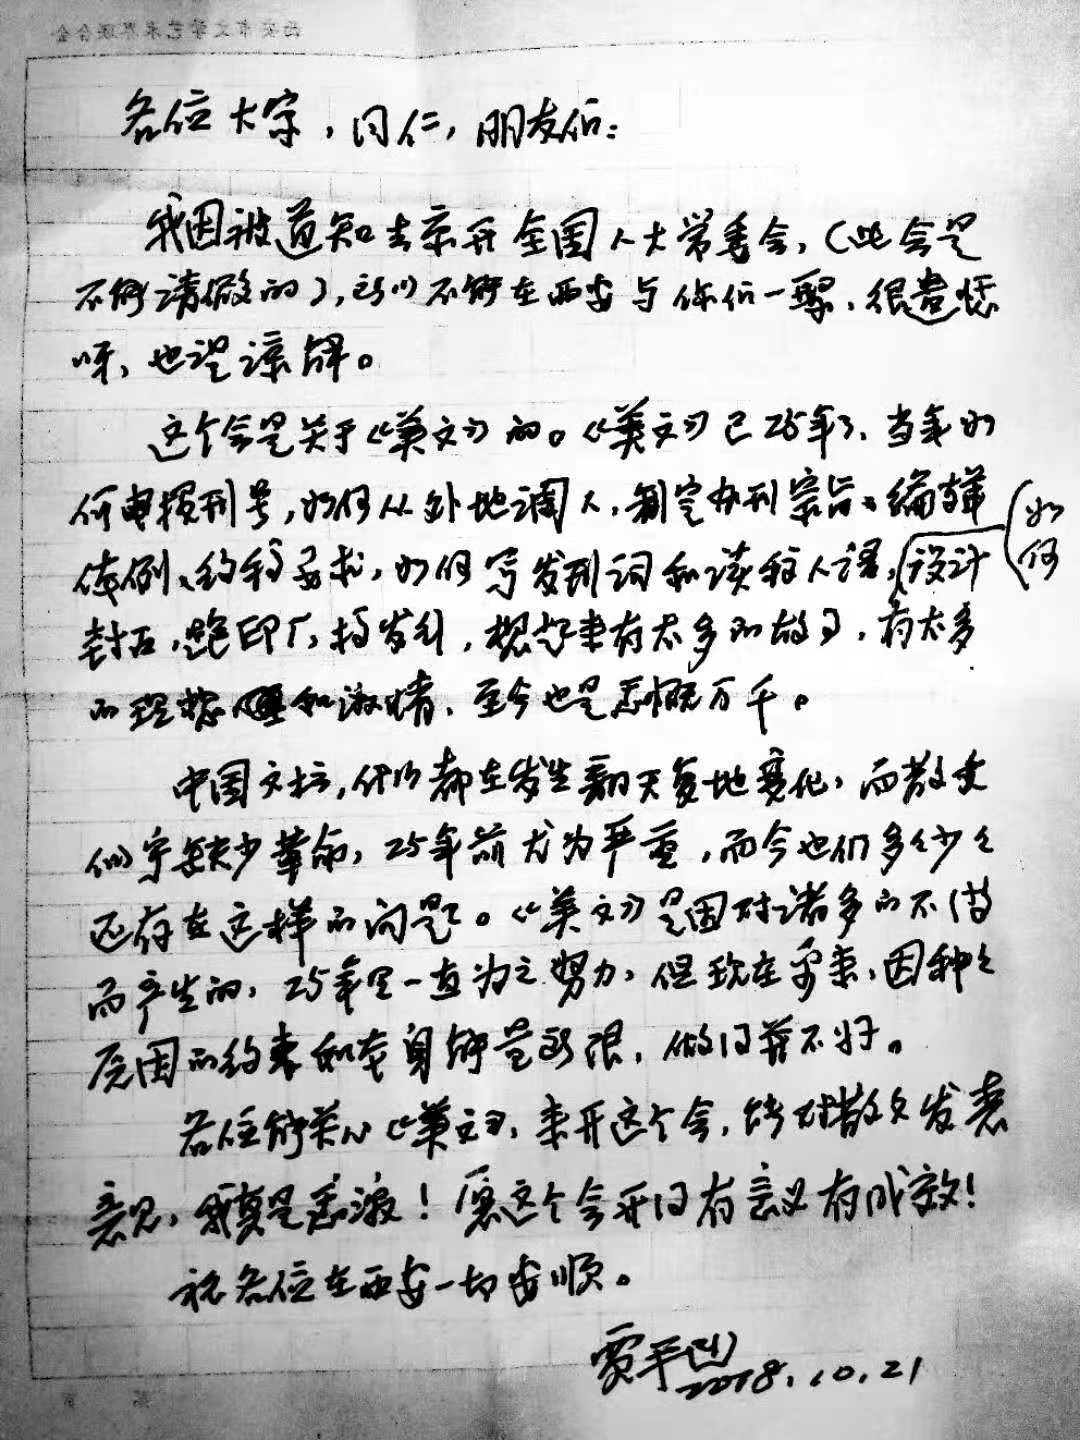 西安市文学艺术界联合会
各位大家，同仁，朋友们：
我因被通知去京开全国人大常委会，（此会是
不能请假的），所以不能在西安与你们一聚，很遗憾
呀，也望谅解。
这个会是关于《美文》的。《美文》已25年了，当年如
何申报刊号，如何从外地调人，制定办刊宗旨、编辑
体例、约稿要求，如何写发刊词和读稿人语，如何设计
封面，跑印厂，搞发行，想起来有太多的故事，有太多
的理想和激情，至今也是感慨万千。
中国文坛，什么都在发生翻天复地变化，而散文
似乎缺少革命，25年前尤为严重，而今也们多多少少
还存在这样的问题。《美文》是因对诸多的不满
而产生的，25年里一直为之努力，但现在看来，因种种
原因的约束和本身能量所限，做得并不好。
各位能关心《美文》，来开这个会，能对散文发表
意见，我真是感激！愿这个会开得有意义有成效！
祝各位在西安一切安顺。
贾平凹
2018.10.21